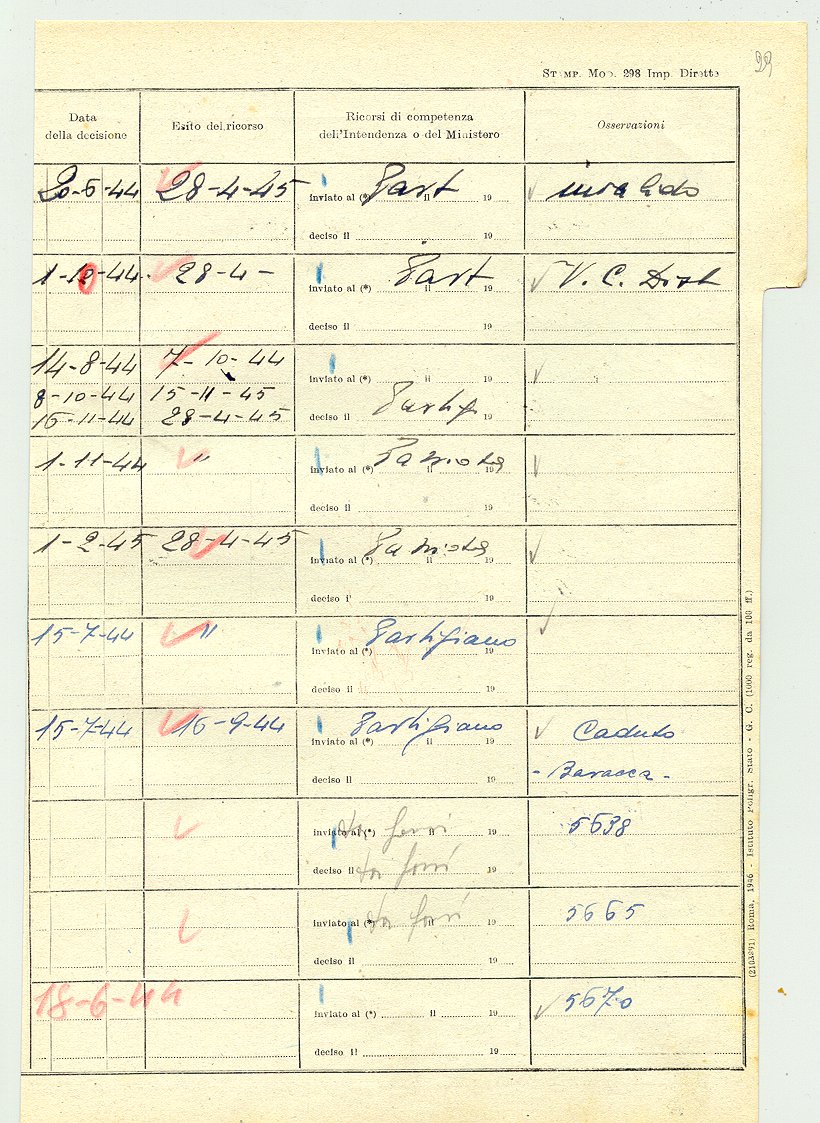 99
STAMP. MOD. 298 Imp. Dirette
Data della decisione
Esito del ricorso
Ricorsi di competenza dell'Intendenza o del Ministero
Osservazioni
20-6-44 28-4-45 Part invalido
inviato al (*) il 19
deciso il 19
1-10-44 28-4- Part V. C. Dist
inviato al (*) il 19
deciso il 19
14-8-44 7-10-44
inviato al (*) il 19
8-10-44 15-11-45
16-11-44 28-4-45 Partig
deciso il 19
1-11-44 " Patriota
inviato al (*) il 19
deciso il 19
1-2-45 28-4-45 Patriota
inviato al (*) il 19
deciso i' 19
15-7-44 " Partigiano
inviato al (*) il 19
deciso il 19
15-7-44 16-9-44 Partigiano Caduto
inviato al (*) il 19
deciso il 19 - Baracca -
inviato al (*) il 19 5638
deciso il 19
inviato al (*) il 19 5665
deciso il 19
18-6-44
inviato al (*) il 19 5670
deciso il 19
(2103391) Roma, 1946 - Istituto Poligr. Stato - G. C. (1000 reg. da 100 ff.)